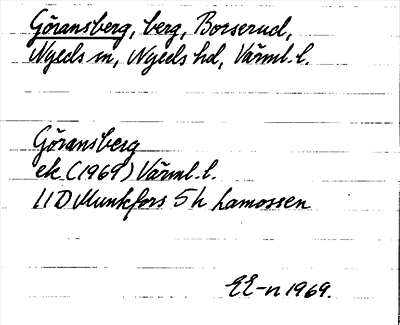 Göransberg, berg, Borserud,
Nyeds sn, Nyeds hd, Värml. l.
Göransberg
ek (1969) Värml. l.
11D Munkfors 5h Lamossen
EE-n 1969.